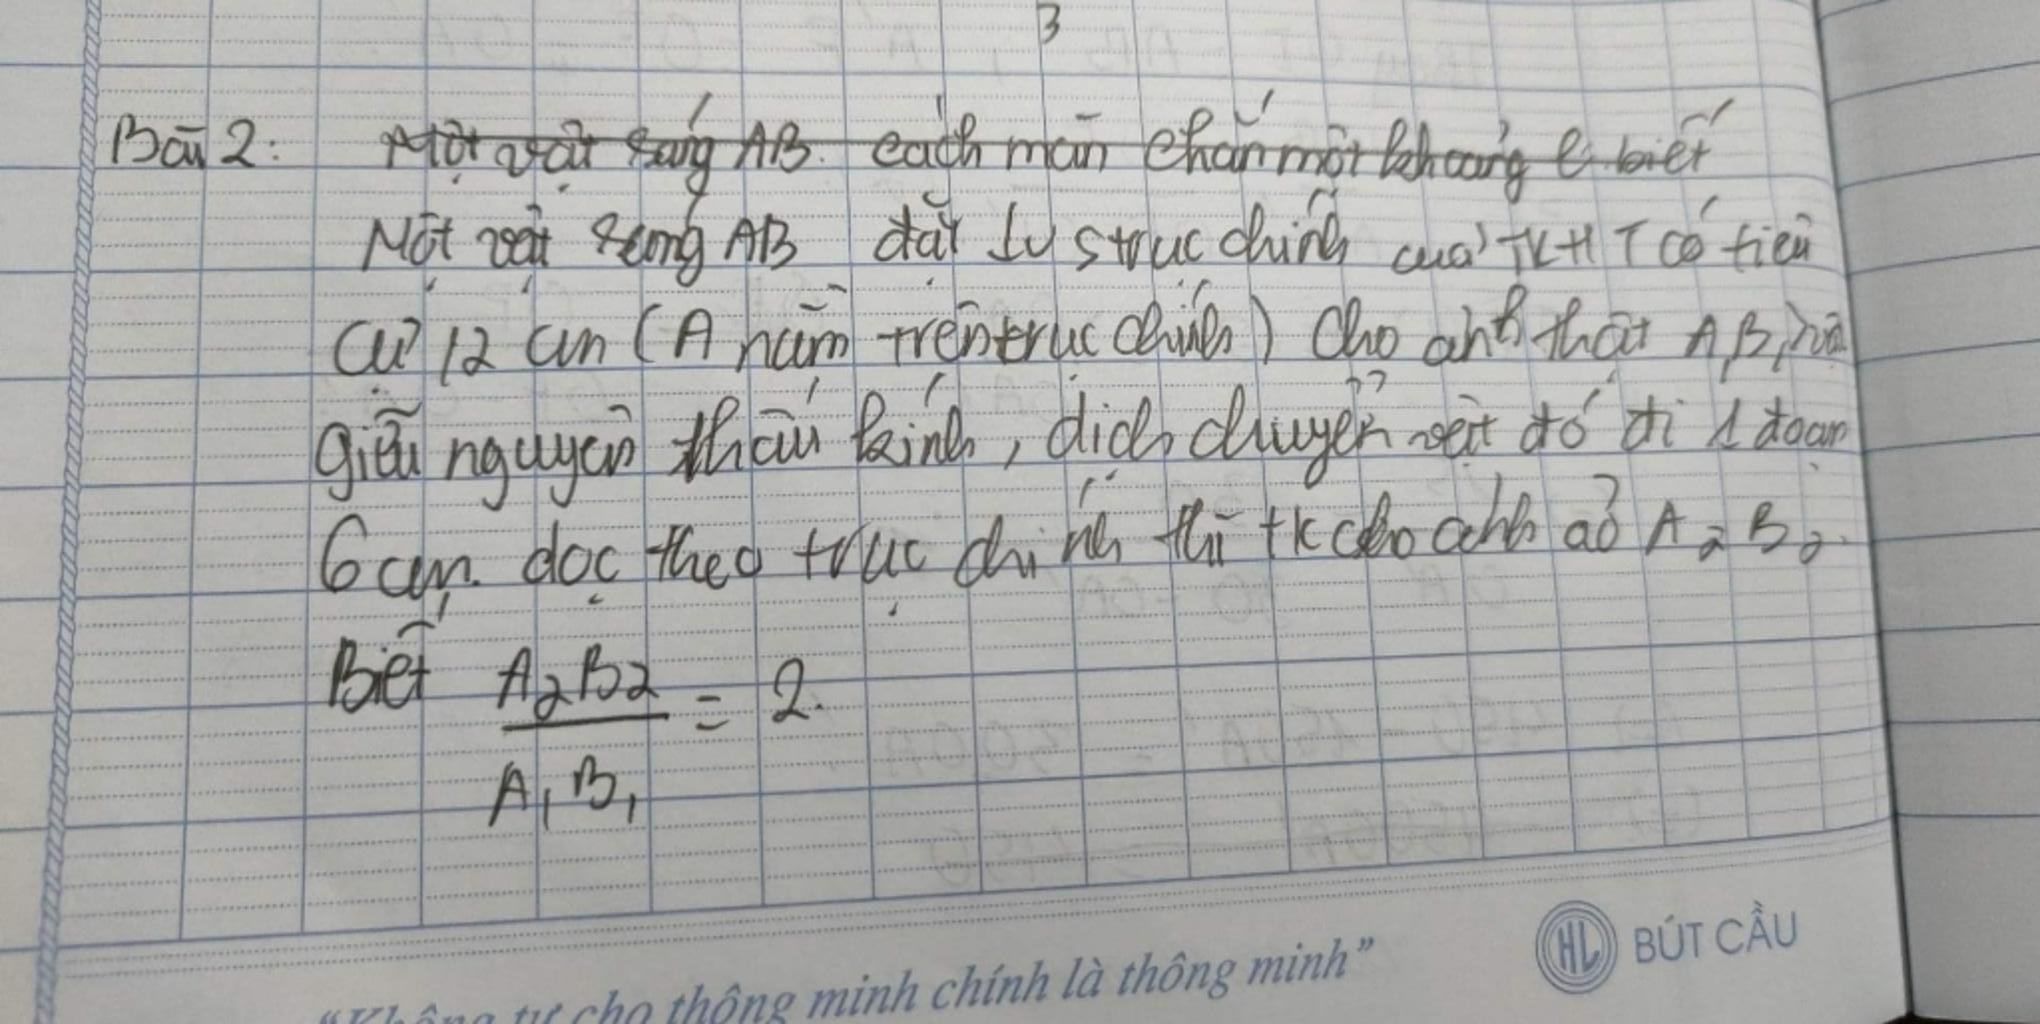 3
Bài 2: Một vật sáng AB cách màn chắn một khoảng l biết
Một vật sáng AB đặt ⊥ trục chính của TKHT có tiêu
cự 12 cm (A nằm trên trục chính) Cho ảnh thật A₁B₁ và
giữ nguyên thấu kính, dịch chuyển vật đó đi 1 đoạn
6 cm. dọc theo trục chính thì tk cho ảnh ảo A₂B₂.
Biết A₂B₂ / A₁B₁ = 2.
HL BÚT CẦU
"Không tự cho thông minh chính là thông minh"